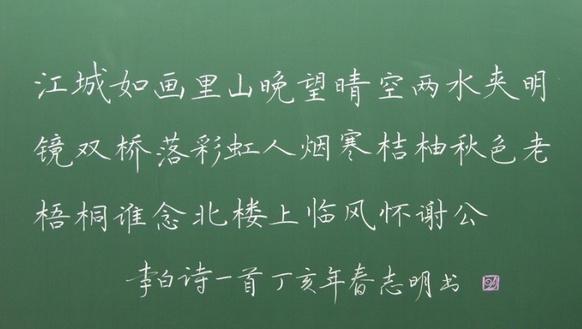 江城如画里山晚望晴空两水夹明
镜双桥落彩虹人烟寒桔柚秋色老
梧桐谁念北楼上临风怀谢公
李白诗一首丁亥年春志明书